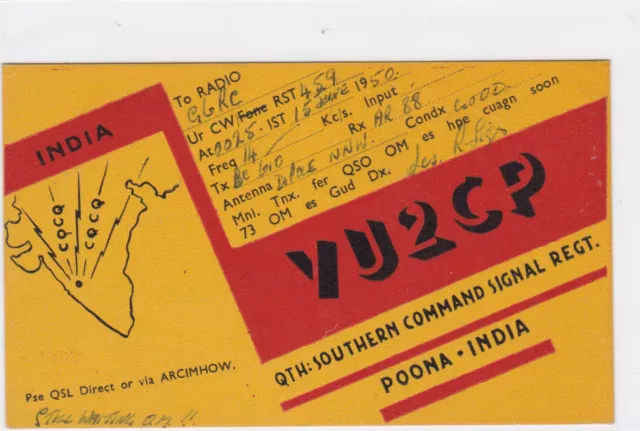 INDIA
To RADIO G6RC
Ur CW Fone RST 459
At 0025 . IST 15 JUNE 1950.
Freq 14 Kc/s. Input
Tx Bc 610 Rx AR 88
Antenna NNW. Condx GOOD
Mni. Tnx. fer QSO OM es hpe cuagn soon
73 OM es Gud Dx.
CQCQ
CQCQ
VU2CP
QTH: SOUTHERN COMMAND SIGNAL REGT.
POONA • INDIA
Pse QSL Direct or via ARCIMHOW.
STILL WAITING O.M !!